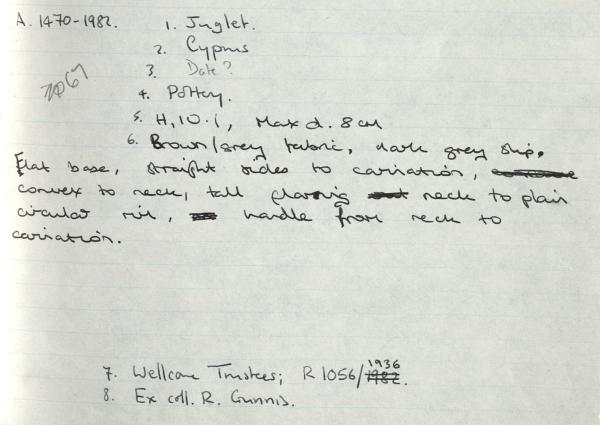 A. 1470-1982. 1. Juglet.
2. Cyprus
3. Date?
4. Pottery.
5. H, 10.1, Max d. 8 cm
6. Brown/grey fabric, dark grey slip.
Flat base, straight sides to cariation,
convex to neck, tall flaring neck to plain
circular rim, handle from neck to
cariation.
7. Wellcome Trustees; R 1056/1936 1982.
8. Ex coll. R. Gunnis.